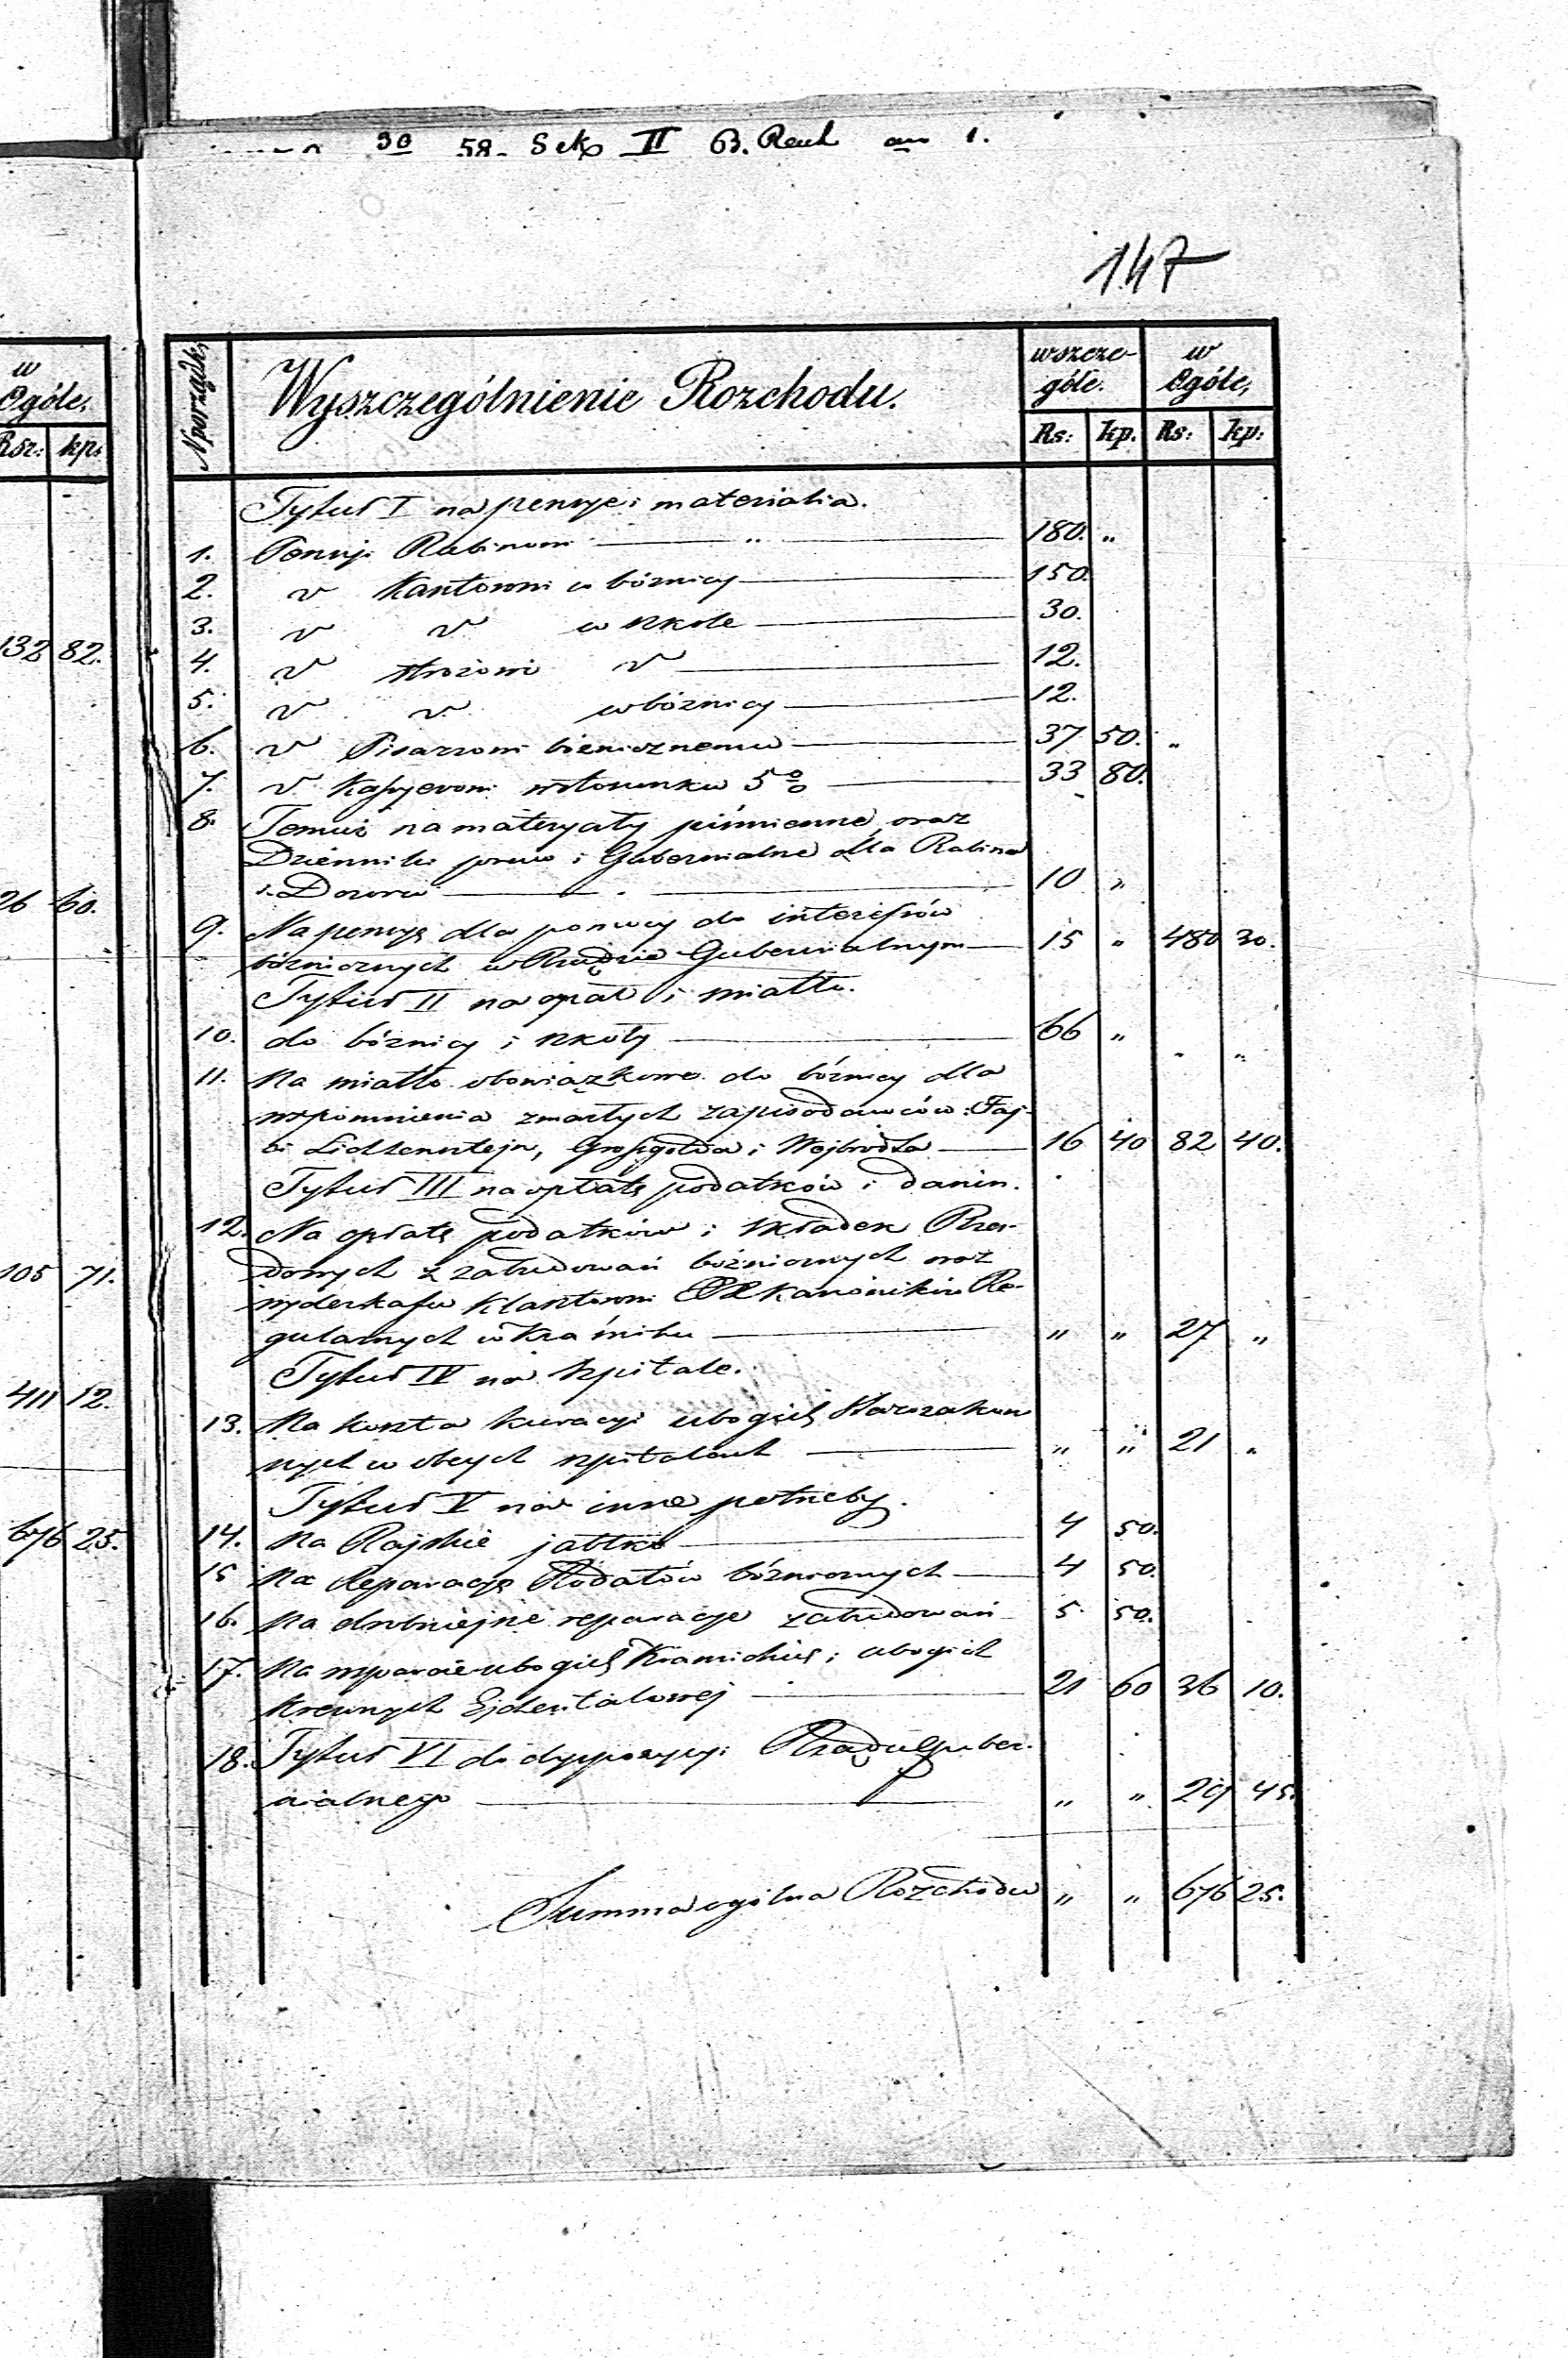 30 58. Sek II B.
147
w Ogóle.
Rsr: kp.
132 82.
26 60.
105 71.
411 12.
676 25.
N porządk. Wyszczególnienie Rozchodu. wszcze- w
góle. Ogóle,
Rs: kp. Rs: kp:
Tytuł I na pensye i materialia.
1. Pensyi Rabinowi — " — 180. "
2. v Kantorowi w bóżnicy — 150.
3. v v w szkole — 30.
4. v stróżowi v — 12.
5. v v w bóżnicy — 12.
6. v Pisarzowi bóżnicznemu — 37 50. "
7. v Kassyerowi w stosunku 5% — 33 80.
8. Temuż na materyały piśmienne oraz
Dzienniki praw i Gubernialne dla Rabina
i Dozoru — 10 "
9. Na pensyę dla pomocy do interessów
bóżnicznych w Rządzie Gubernialnym — 15 " 480 30.
Tytuł II na opał i światło.
10. do bóżnicy i szkoły — 66 " " "
11. Na światło obowiązkowe do bóżnicy dla
wspomnienia zmarłych zapisodawców: Faj-
bi Lichtensztejn, Grossgolda i Wejbrodta — 16 40 82 40.
Tytuł III na opłatę podatków i danin.
12. Na opłatę podatków i składek Rzą-
dowych z zabudowań bóżnicznych oraz
wyderkafu Klasztorowi XX Kanoników Re-
gularnych w Kraśniku — " " 27 "
Tytuł IV na szpitale.
13. Na koszta kuracyi ubogich Starozakon
nych w obcych szpitalach — " " 21 "
Tytuł V na inne potrzeby.
14. Na Rajskie jabłko — 4 50.
15 Na Reparacyę Rodałów bóżnicznych — 4 50.
16. Na drobniejsze reparacye zabudowań 5. 50.
17. Na wsparcie ubogich Kraśnickich i ubogich
krewnych Ejchentalowej — 21 60 36 10.
18. Tytuł VI do dyspozycyi Rządu Guber-
nialnego — " " 29 45.
Summa ogólna Rozchodu " " 676 25.